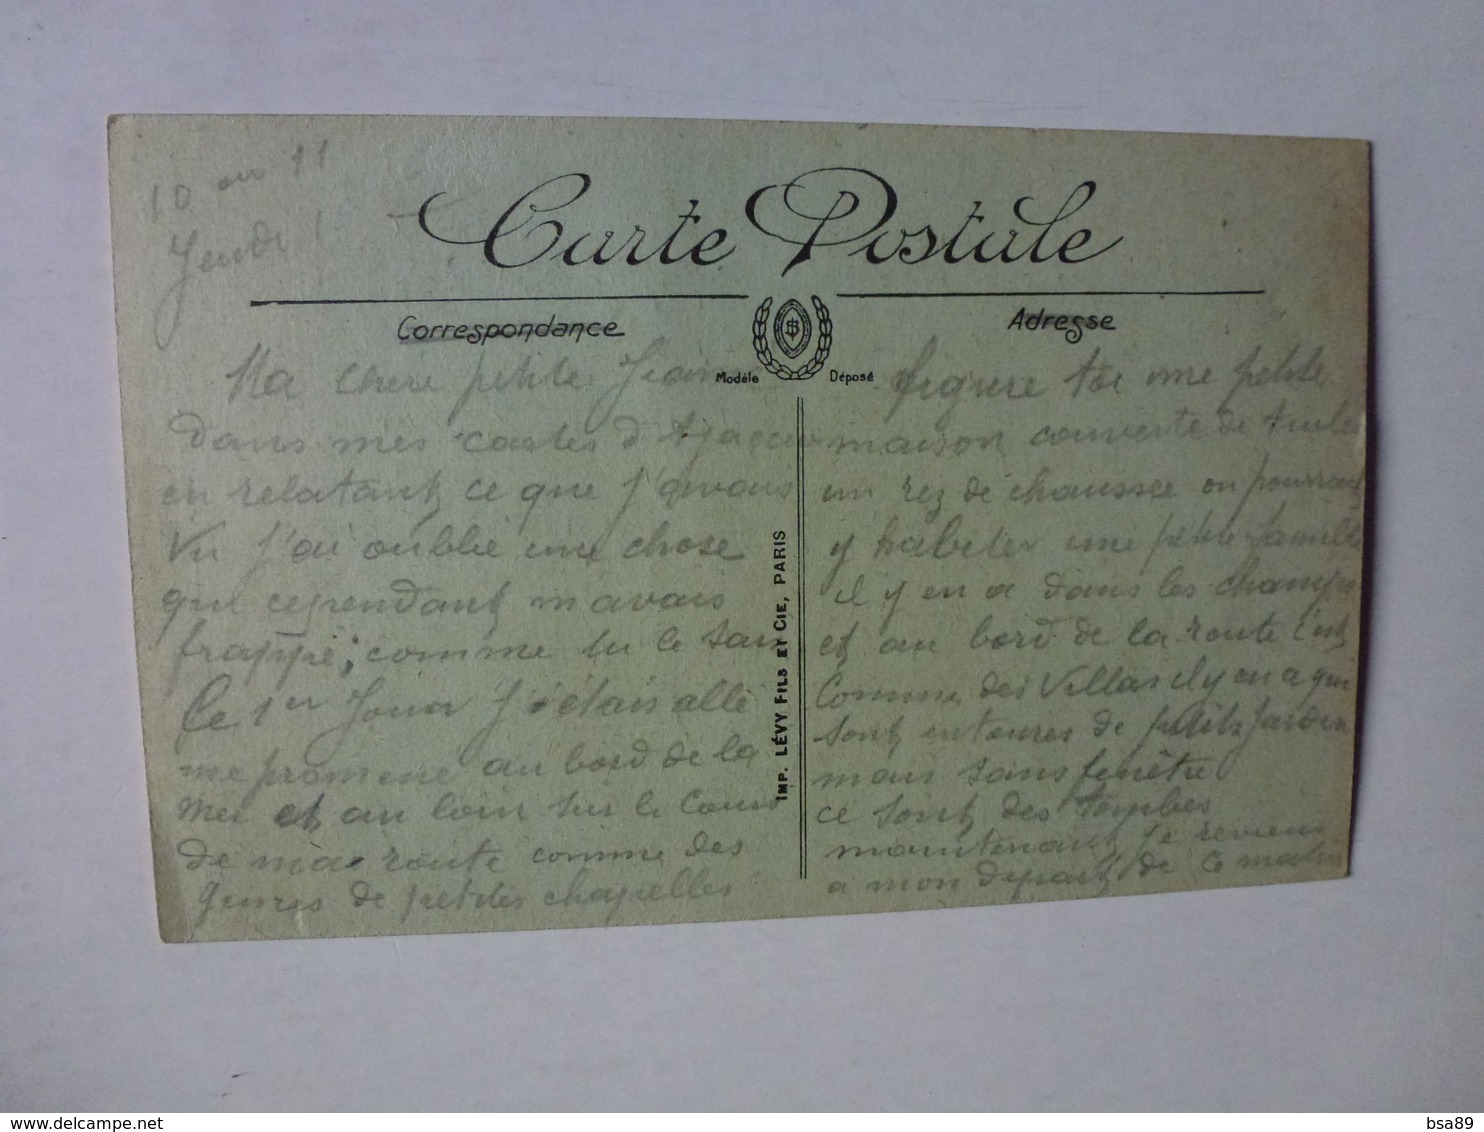 10 ou 11
Jeudi
Carte Postale
Correspondance
Adresse
Modèle Déposé
IMP. LÉVY FILS ET CIE, PARIS
Ma chere petite Jeanne
Dans mes cartes d'Ajaccio
en relatant ce que j'avais
vu j'ai oublié une chose
qui cependant m'avais
frappé; comme tu le sais
le 1er Jour J'étais allé
me promené au bord de la
mer et au loin sur le
de ma route comme des
genres de petites chapelles
figure toi une petite
maison couverte de tuiles
un rez de chaussee on pourrait
y habiter une petite famille
il y en a dans les champs
et au bord de la route c'est
comme des villas il y en a qui
sont entoures de petits jardin
mais sans fenêtre
ce sont des tombes
maintenant je reviens
a mon depart de ce matin
delcampe.net
bsa89